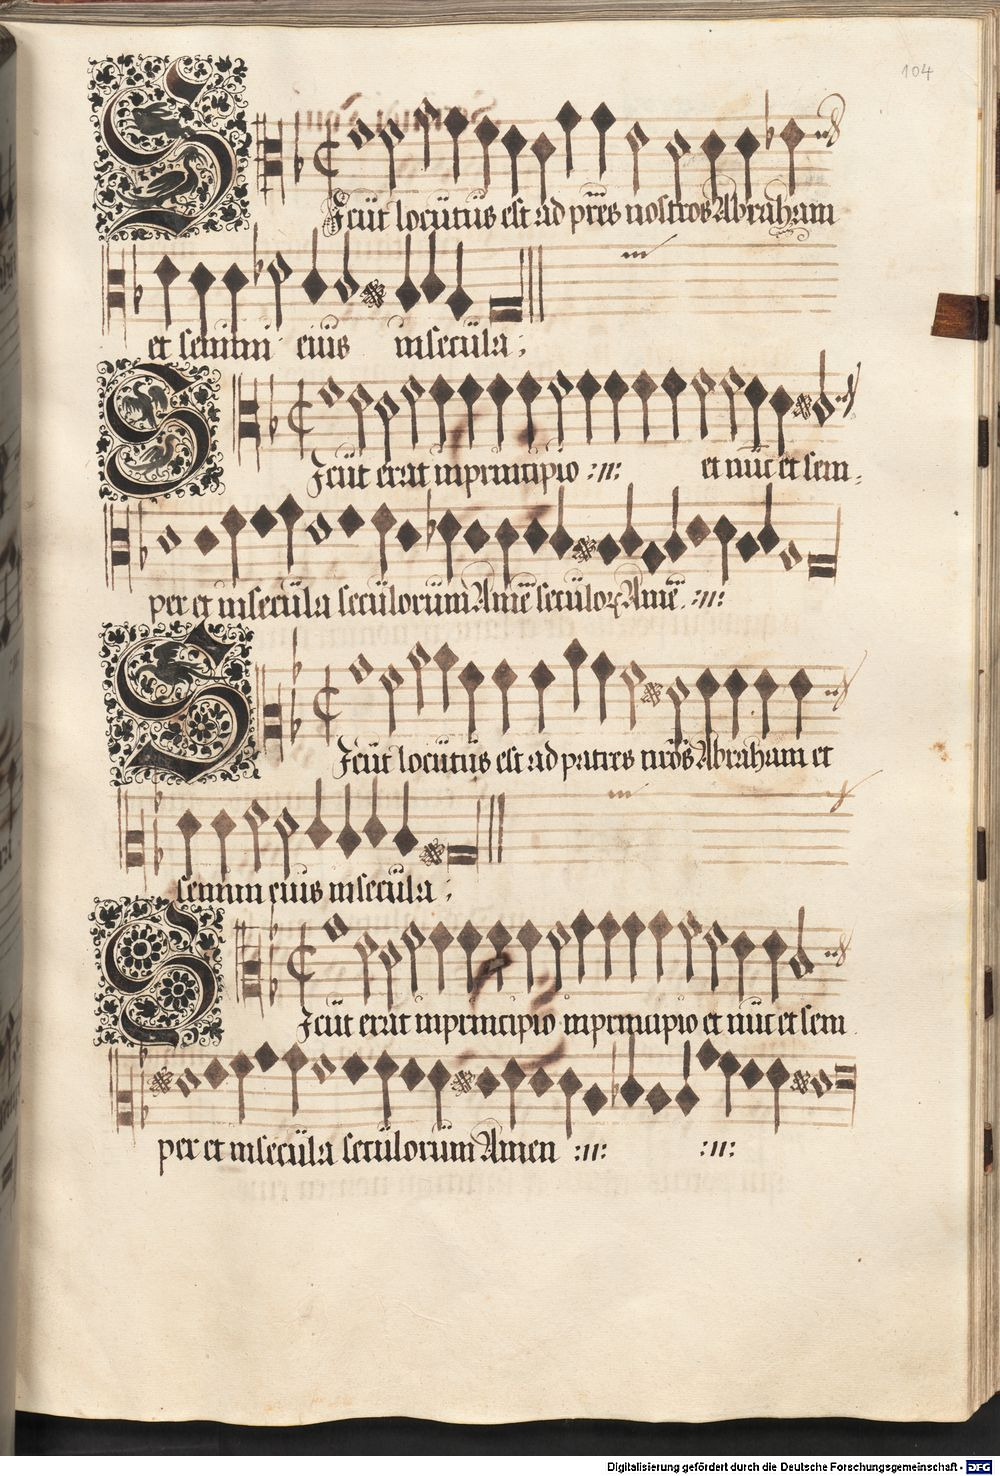 104
Sicut locutus est ad pr̄es nostros Abraham
et semini eius in secula :
Sicut erat in principio :ıı: et nūc et sem-
per et in secula seculorum Amē seculoꝝ Amē :ıı:
Sicut locutus est ad patres nr̄os Abraham et
semini eius in secula :
Sicut erat in principio in principio et nūc et sem
per et in secula seculorum Amen :ıı: :ıı:
Digitalisierung gefördert durch die Deutsche Forschungsgemeinschaft - DFG